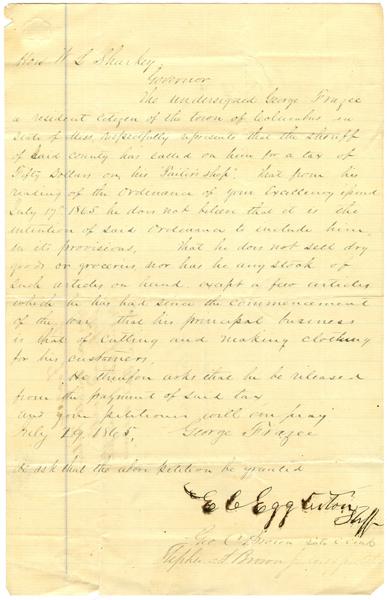 Hon W L Sharkey
Governor
The Undersigned George Frazee
a resident Citizen of the town of Columbus in
State of Miss, respectfully represents that the Sheriff
of said county has called on him for a tax of
Fifty Dollars on his "Tailor's shop". That from his
reading of the Ordinance of your Excellency
July 17th 1865 he does not believe that it is the
intention of said Ordinance to include him
in its provisions. That he does not sell dry
goods or groceries, nor has he any stock of
such articles on hand except a few articles
which he has had since the commencement
of the war that his principal business
is that of Cutting and making clothing
for his customers.
He therefore asks that he be released
from the payment of said tax
and your petitioner will ever pray
July 29, 1865, George Frazee
We ask that the above petition be granted
E C Eggleston Shff
Geo Brown Clerk
Stephen A Brown